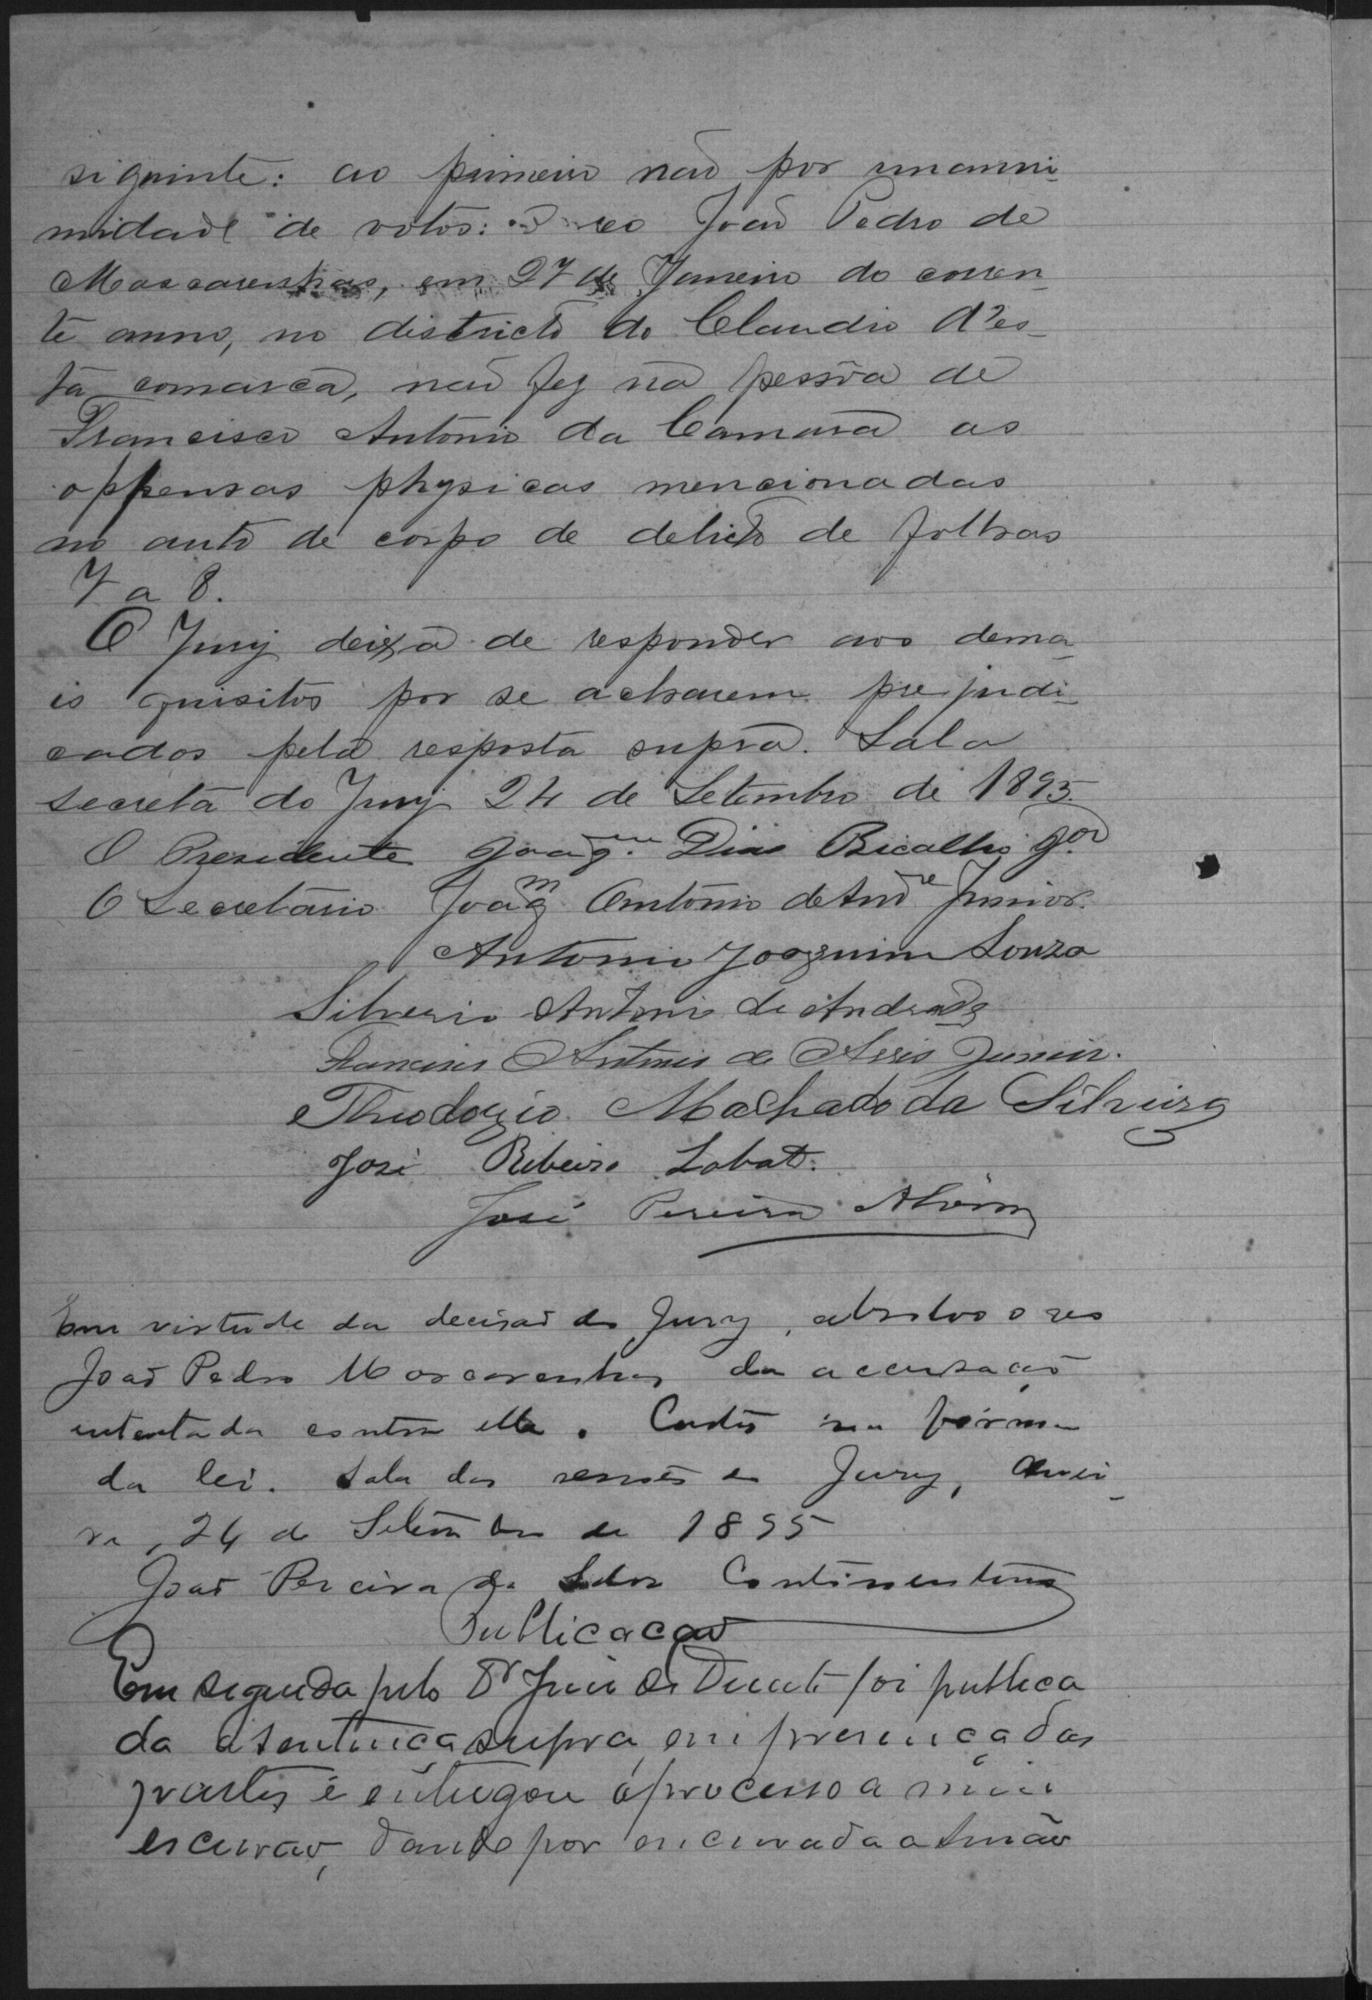 siguinte: ao primeiro não por unanni-
midade de votos: O reo João Pedro de
Mascarenhas, em 27 de Janeiro do corren-
te anno, no districto do Claudio d'es-
ta comarca, não fez na pessôa de
Francisco Antonio da Camara as
offensas physicas mencionadas
no auto de corpo de delicto de folhas
7 a 8.
O Jury deixa de responder aos dema-
is quisitos por se acharem prejudi-
cados pela resposta supra. Sala
secreta do Jury 24 de Setembro de 1895.
O Presidente Joaqm. Dias Bicalho Jor
O Secretario Joaqm Antonio de Andre Junior.
Antonio Joaquim Souza
Silverio Antonio de Andrade
Francisco Antonio de Assis Junior.
Theodozio Machado da Silveira
José Ribeiro Lobato.
José Pereira
Em virtude da decisão do Jury, absolvo o reo
João Pedro Mascarenhas da accusação
intentada contra elle. Custas na fórma
da lei. Sala das sessões do Jury, Olivei-
ra, 24 de Setembro de 1895
João Pereira da Silva Continentino
Publicação
Em seguida pelo Dr Juiz de Direito foi publica
da a sentença supra em presença das
partes e entregou o processo a mim
escrivão, dando por encerrada a sessão